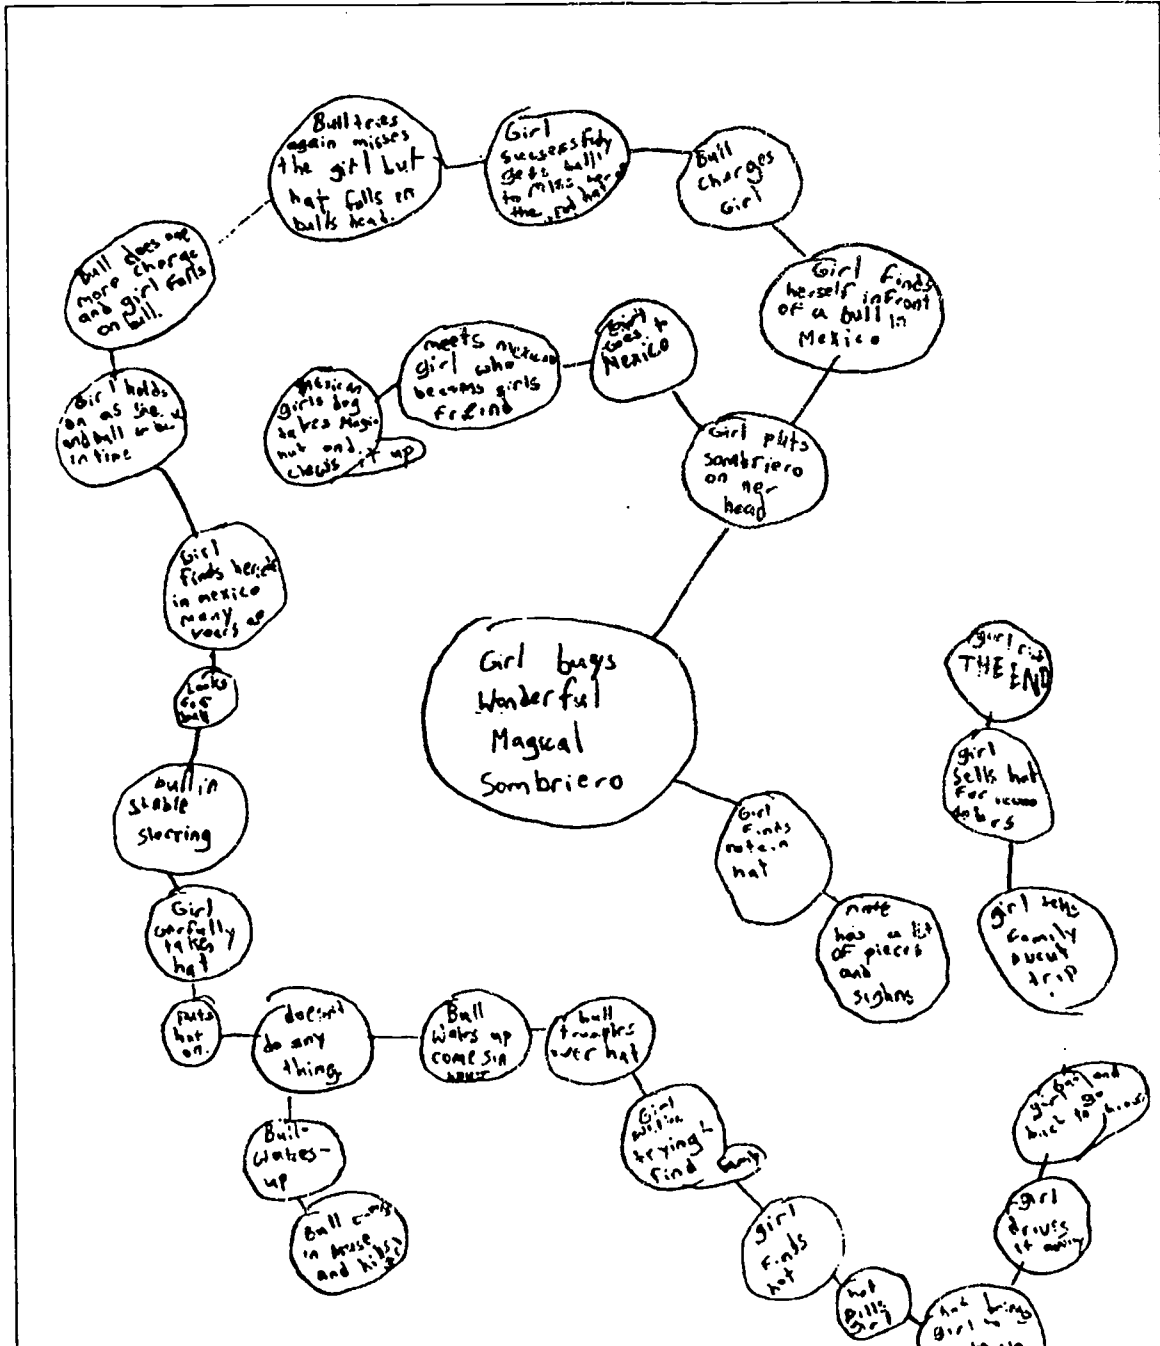 Girl buys
Wonderful
Magical
Sombriero
Girl puts
sombriero
on her
head
Girl
Goes to
Mexico
meets mexican
girl who
becomes girls
freind
mexican
girls dog
takes Magic
hat and
chews it up
Girl finds
herself infront
of a bull in
Mexico
Bull
charges
Girl
Girl
gets bull
to Miss her
the hat
Bull tries
again misses
the girl but
hat falls on
bulls head.
Bull does one
more charge
and girl falls
on bull.
Girl holds
on as she
and bull
in time
Girl
finds herself
in mexico
many
years ago
Looks
for
bull
bull in
stable
sleeping
Girl
carfully
takes
hat
Puts
hat
on.
doesn't
do any
thing
Bull
wakes-
up
Bull comes
in house
and
Bull
wakes up
comes in
bull
tramples
over hat
Girl
trying t
find family
girl
finds
hat
hat
pulls
girl
hat brings
girl to
girl
drives
it away
girl and
back to
girl tells
family
about
trip
girl
sells hat
for
dolars
girl rich
THE END
Girl
finds
note in
hat
note
has a list
of pieces
and
sighns